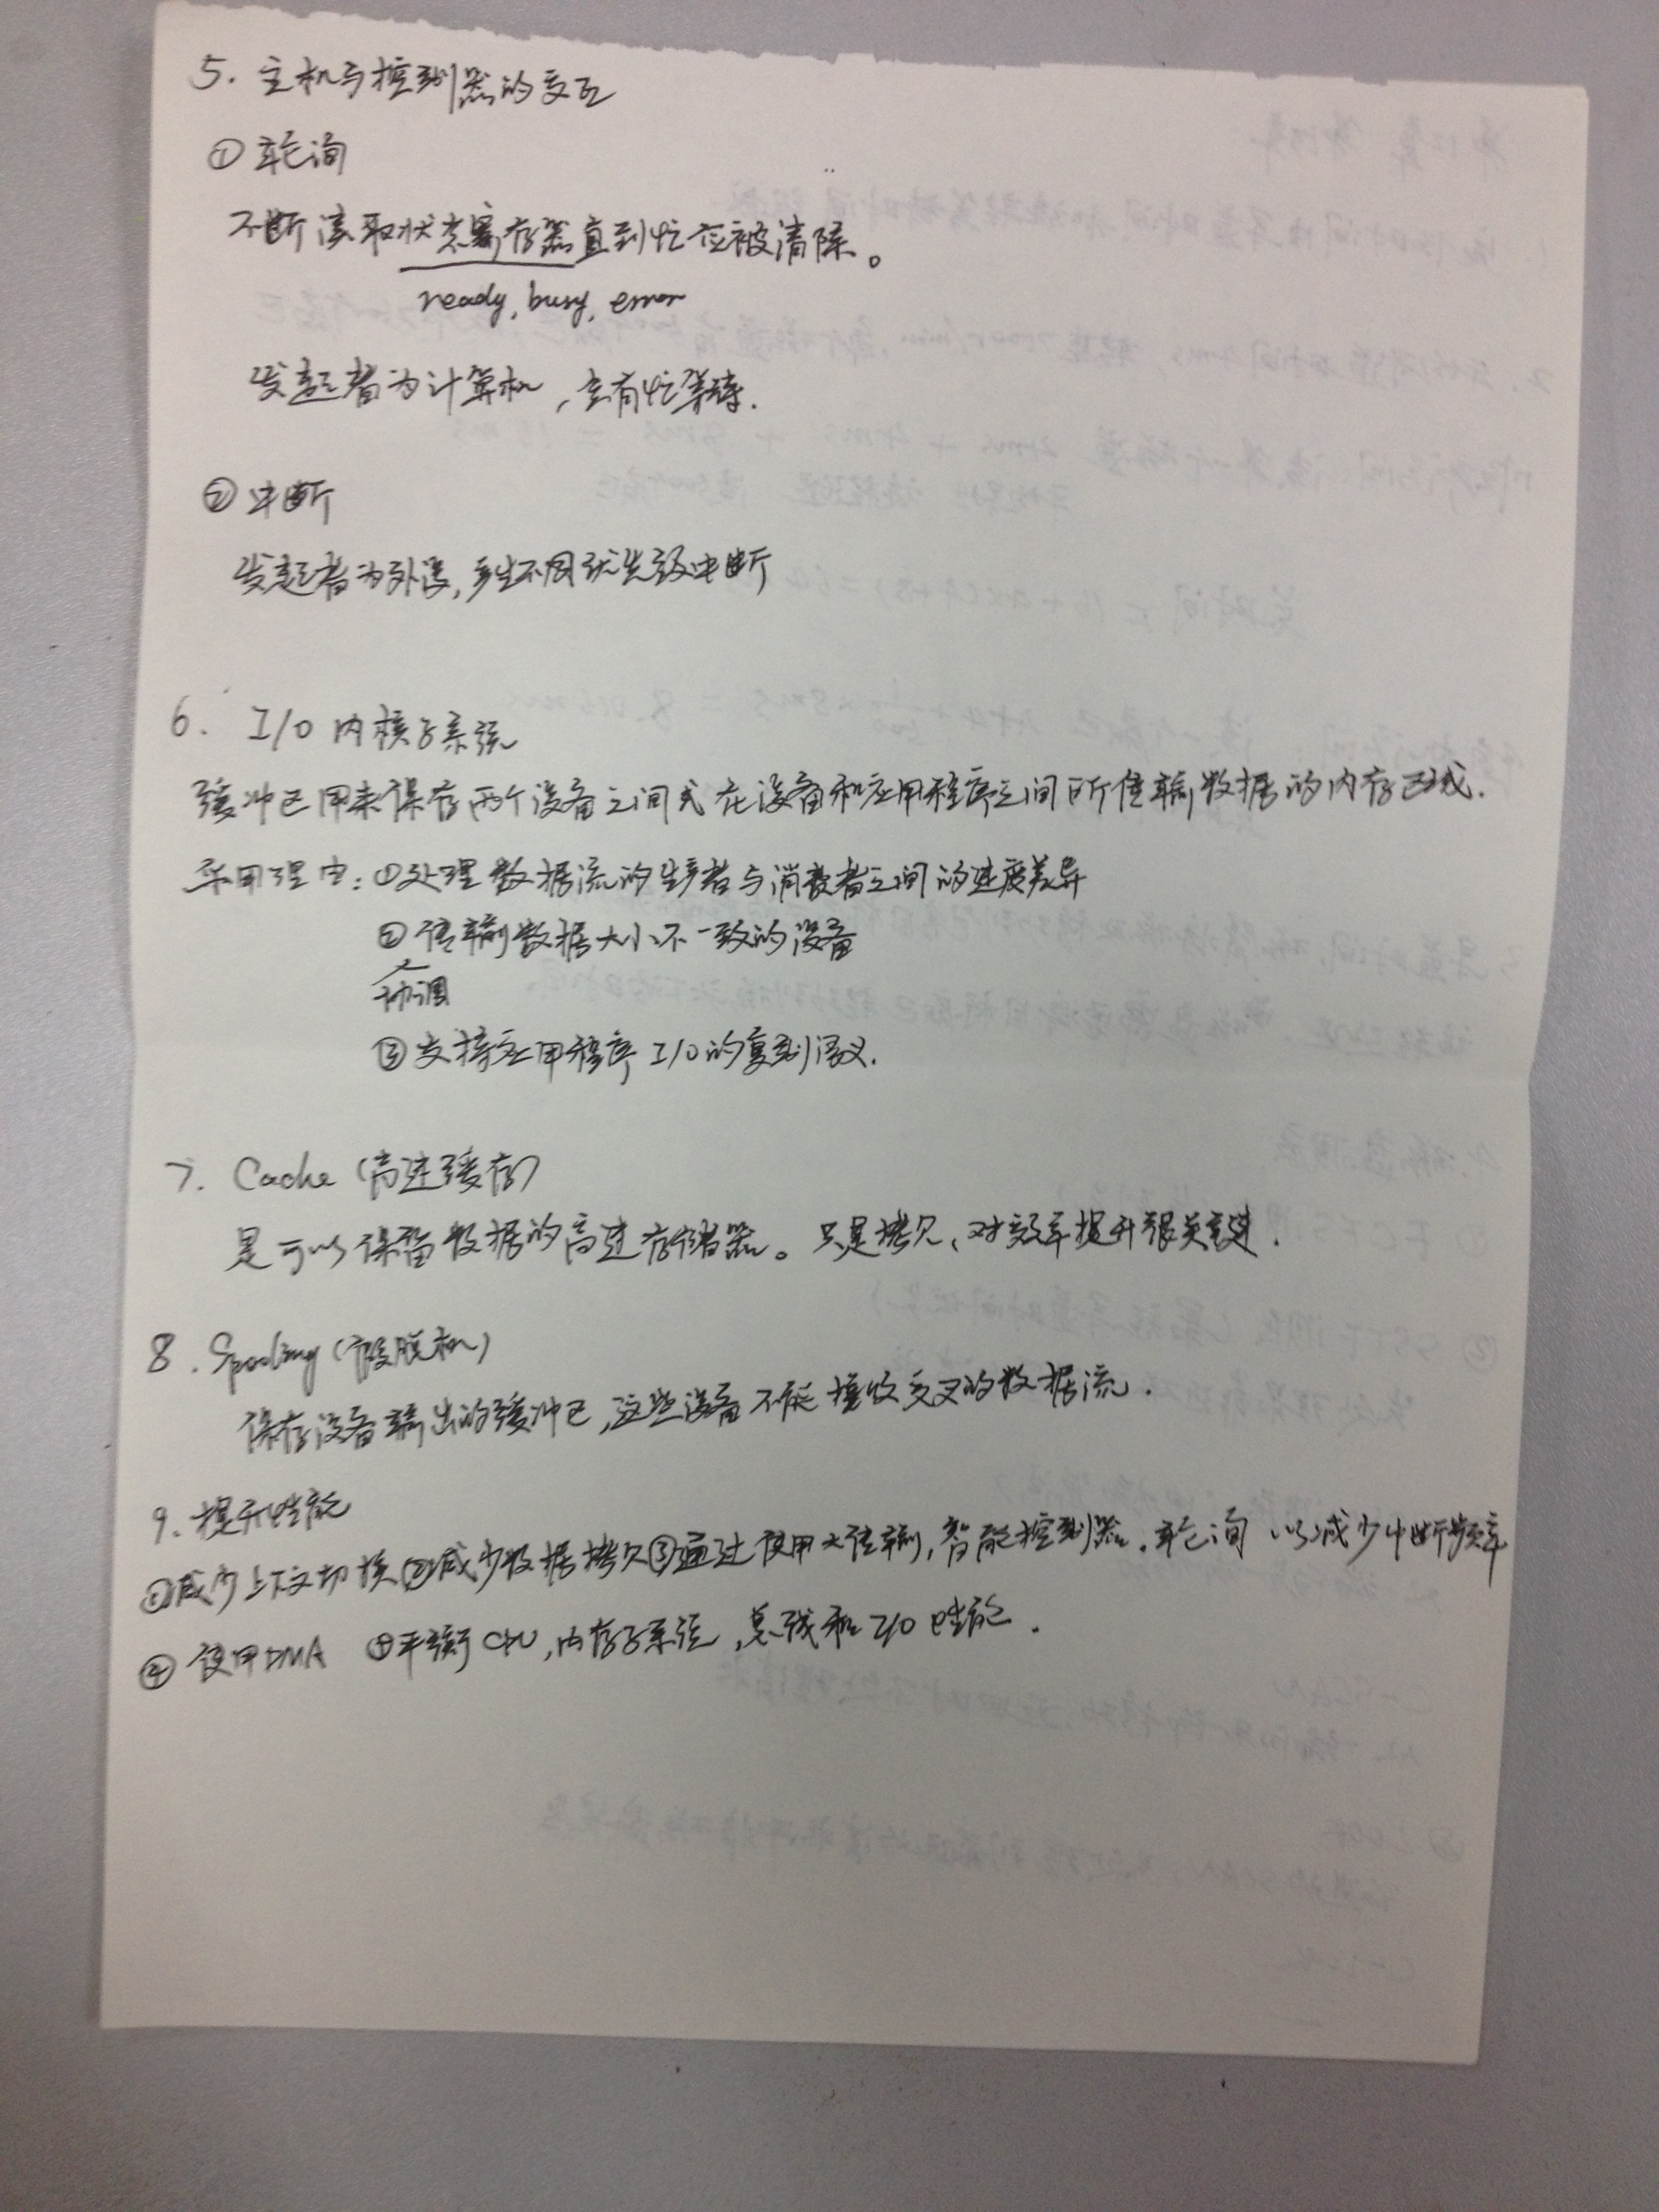 5. 主机与控制器的交互
① 轮询
不断读取状态寄存器直到忙位被清除。
ready, busy, error
发起者为计算机，会有忙等待.
② 中断
发起者为外设, 产生不同优先级中断
6. I/O 内核子系统
缓冲区用来保存两个设备之间或在设备和应用程序之间所传输数据的内存区域.
采用理由: ①处理数据流的生产者与消费者之间的速度差异
② 传输数据大小不一致的设备
协调
③ 支持应用程序 I/O 的复制语义.
7. Cache (高速缓存)
是可以保留数据的高速存储器。只是拷贝、对效率提升很关键.
8. Spooling (假脱机)
保存设备输出的缓冲区,这些设备不能接收交叉的数据流.
9. 提升性能
①减少上下文切换②减少数据拷贝③通过使用大传输,智能控制器.轮询 以减少中断频率
④ 使用DMA ⑤平衡CPU,内存子系统,总线和I/O性能.